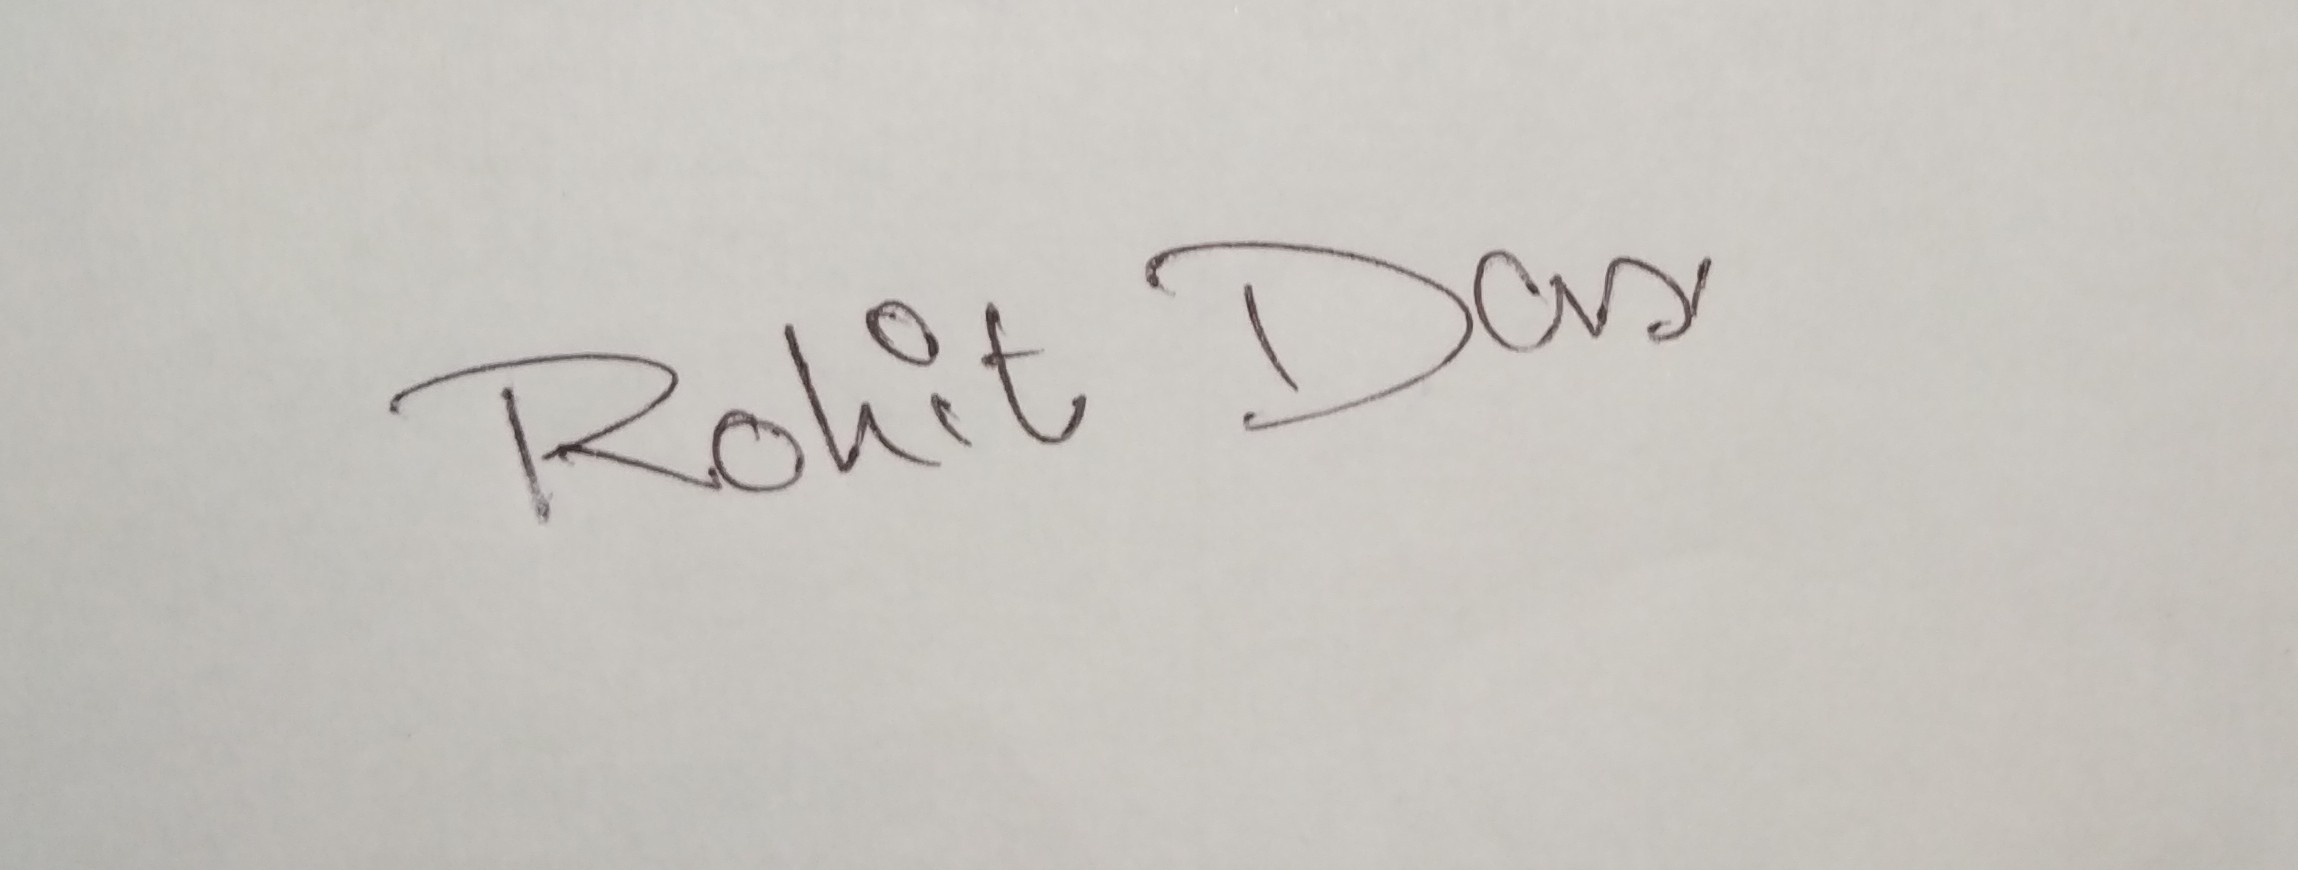 Rohit Das